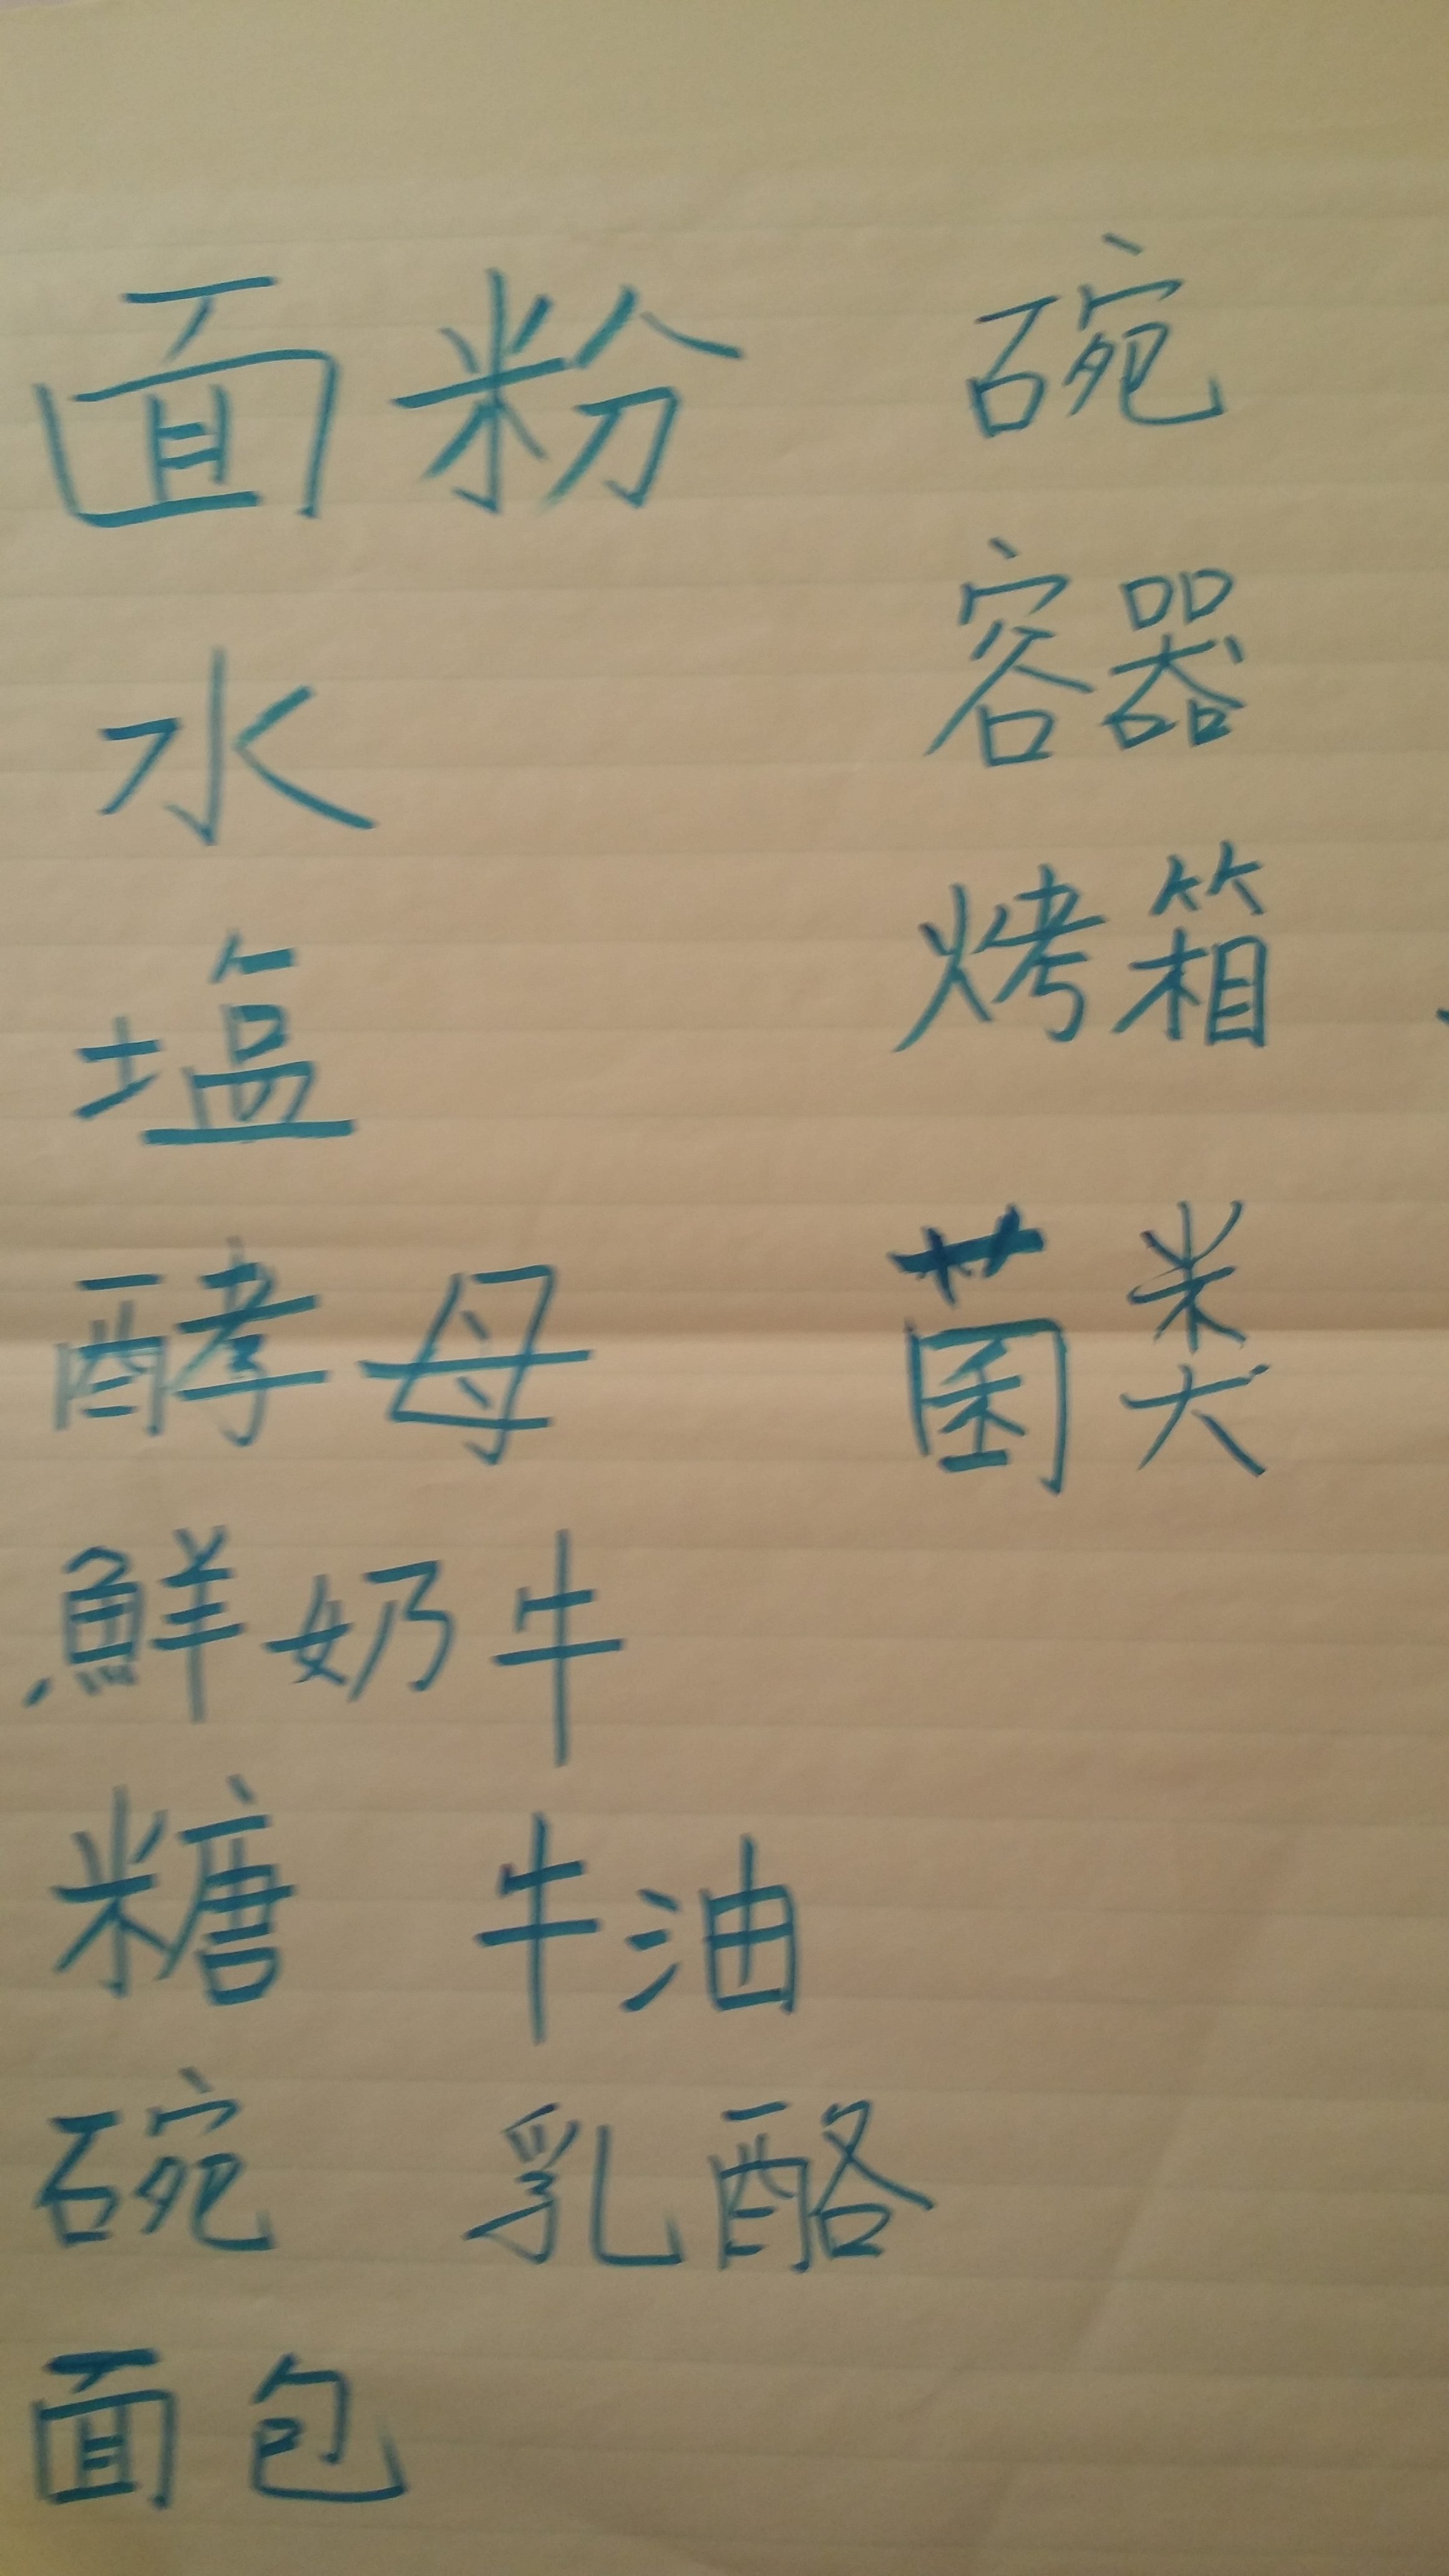 面粉
水
塩
酵母
鮮奶牛
糖 牛油
碗 乳酪
面包
碗
容器
烤箱
菌类